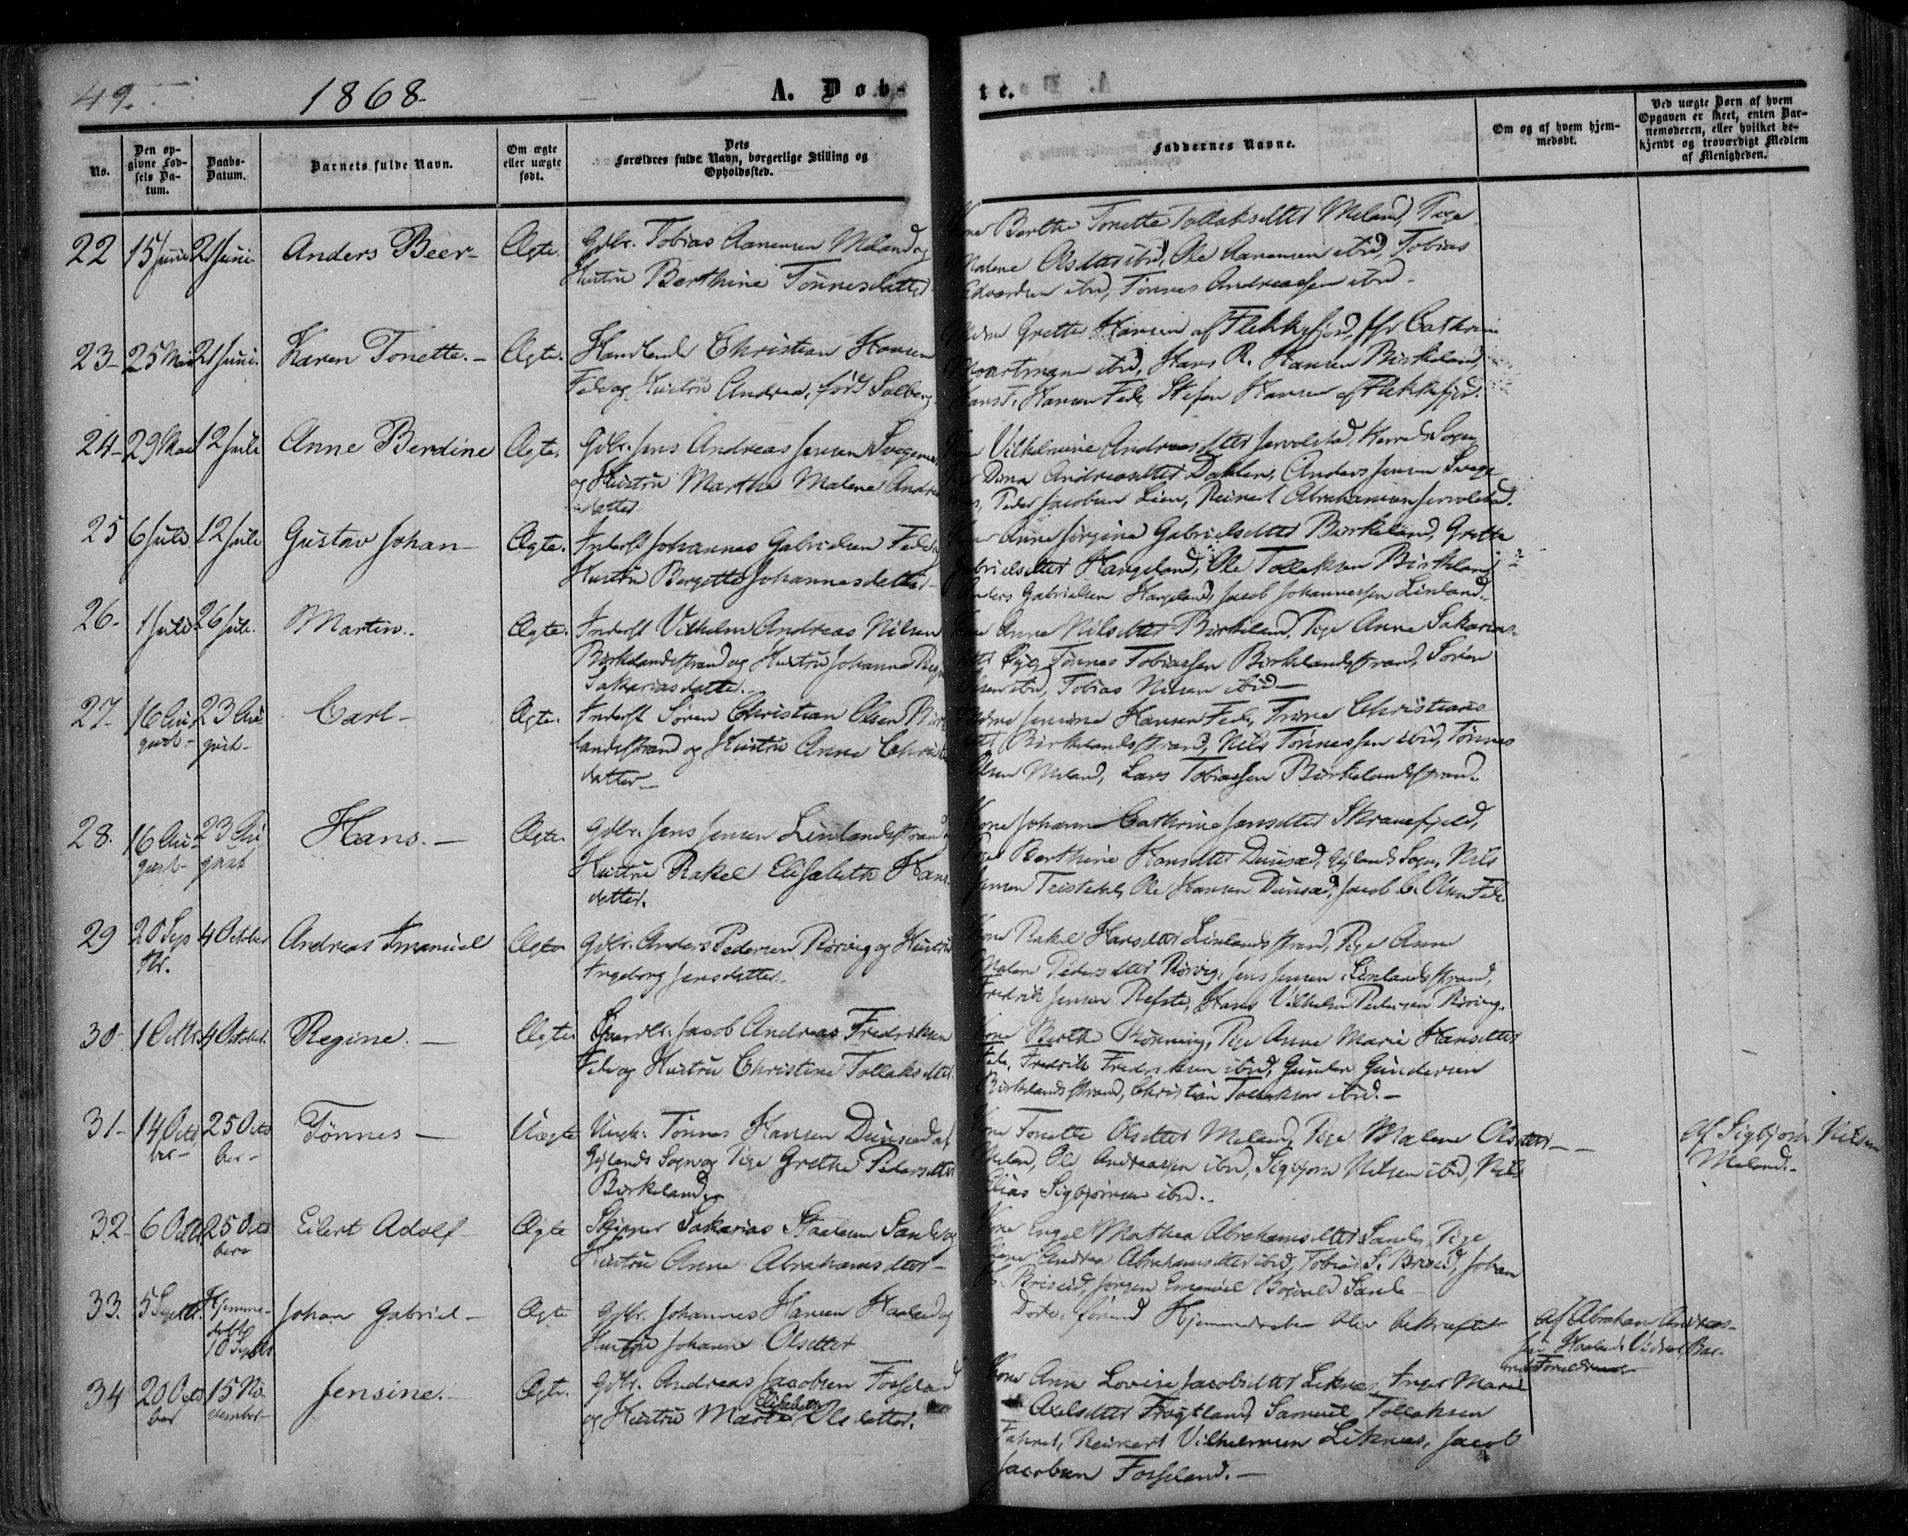 49.
1868.
A. Døb-
te.
No.
Den op-
givne Fød-
sels Da-
tum.
Daabs-
Datum.
Barnets fulde Navn.
Om ægte
eller uægte
født.
Dets
Forældres fulde Navn, borgerlige Stilling og
Opholdssted.
Faddernes Navne.
Om og af hvem hjem-
medøbt.
Ved uægte Børn af hvem
Opgaven er skeet, enten Bar-
nemoderen, eller hvilket be-
kjendt og troværdigt Medlem
af Menigheden.
22 15 Juni 21 Juni Anders Beer- Ægte. Gdbr. Tobias Aanensen Meland og
Hustru Berthine Tønnesdatter
Kone Berthe Tonette Tollaksdtter Meland, Pige
Malene Olsdtter ibid, Ole Aanensen ibid, Tobias
Edvardsen ibid, Tønnes Andreassen ibid-
23- 25 Mai 21 Juni. Karen Tonette.- Ægte. Handlende Christian Hansen
Fede og Hustru Andrea, fød Salberg
Grette Hansen af Flekkefjord, Cathrine
ibid, Hans R. Hansen Birkeland,
Hansen Fede, Stefen Hansen af Flekkefjord.
24- 29 Mai 12 Juli Anne Berdine Ægte. Gdbr. Jens Andreas Jensen
og Hustru Marthe Malene Andreas
datter
Vilhelmine Andreasdtter Jervolstad, Sogn
Andreasdtter Dahlen, Anders Jensen
Peder Jacobsen Lien, Reinert Abrahamsen Jervolstad.
25 6 Juli 12 Juli Gustav Johan- Ægte. Inderst Johannes Gabrielsen Fede og
Hustru Bergette Johannesdatter-
Anne Jørgine Gabrielsdtter Birkeland, Grethe
Gabrielsdtter Haugeland, Ole Tollaksen Birkeland
Anders Gabrielsen Haugeland, Jacob Johannessen Linland.
26- 1 Juli 26 Juli. Martin. Ægte. Inderst Vilhelm Andreas Nilsen
Birkelandsstrand og Hustru Johanne
Sakariasdatter.
Kone Anne Nilsdtter Birkeland, Pige Anne Sakarias-
dtter Tønnes Tobiassen Birkelandsstrand, Søren
Olsen ibid, Tobias Nilsen ibid-
27- 16 Au- 23 Au-
gust- gust-
Carl- Ægte. Inderst Søren Christian Olsen Birke
landsstrand og Hustru Anne Christians
datter-
Hansen Fede, Trine Christians
dtter Birkelandsstrand, Nils Tønnessen ibid, Tønnes
Olsen Meland, Lars Tobiassen Birkelandsstrand.
28. 16 Au- 23 Au-
gust- gust
Hans.- Ægte. Gdbr. Jens Jensen Linlandsstrand og
Hustru Rakel Elisabeth Hans
datter.
Kone Johanne Cathrine Jensdtter
Pige Berthine Hansdtter Dunsæd, Gylands Sogn, Nils
Jensen Teistedal, Ole Hansen Dunsæd, Jacob C. Olsen Fede.
29 20 Sep 4 October
tbr.
Andreas Imanuel Ægte Gdbr. Anders Pedersen Rørvig og Hustru
Ingeborg Jensdatter.
Kone Rakel Hansdtter Linlandsstrand, Pige Anne
Malene Pedersdtter Rørvig, Jens Jensen Linlandsstrand,
Fredrik Jensen Refsti, Hans Vilhelm Pedersen Rørvig.
30- 1 Octbr 4 October. Regine.- Ægte Jacob Andreas Fredriksen
Fede og Hustru Christine Tollaksdtter
Kone Berthe Rønning, Pige Anne Marie Hansdtter
Fede, Fredrik Fredriksen ibid, Gunder Gundersen
Birkelandsstrand, Christian Tollaksen ibid.-
31- 14 Octo 25 Octo
ber- ber-
Tønnes- Uægte Ungk. Tønnes Hansen Dunsæd af
Gylands Sogn og Pige Grethe Pedersdtter
Birkeland.
Kone Tonette Olsdtter Meland, Pige Malene Olsdtter
Meland, Ole Andreassen ibid, Sigbjørn Nilsen ibid, Nils
Elias Sigbjørnsen ibid.
af Sigbjørn Nilsen
Meland.-
32- 6 Octbr 25 Octo
ber
Eilert Adolf- Ægte Skipper Sakarias Staalesen Sande og
Hustru Anne Abrahamsdtter-
Kone Engel Mathea Abrahamsdtter Sande, Pige
Andrea Abrahamsdtter ibid, Tobias S. Briseid, Johan
S. Briseid, Jørgen Emanuel Bojvald Sande-
33. 5 Septbr. Hjemme-
døbt
10 Septbr
Johan Gabriel- Ægte Gdbr. Johannes Hansen Haaland og
Hustru Johanne Olsdtter
Døde, førend Hjemmedaaben blev bekræftet
af Abraham Andreas-
sen Haaland. Barnets
Forældre
34 20 Octo 15 No-
ber vember-
Jensine. Ægte. Gdbr. Andreas Jacobsen Fosseland
og Hustru Marte Elisabeth Olsdatter.
Kone Anne Lovise Jacobsdtter Liknes, Inger Marie
Axelsdtter Frøytland, Samuel Tollaksen
Reinert Vilhelmsen Liknes, Jacob
Jacobsen Fosseland.-